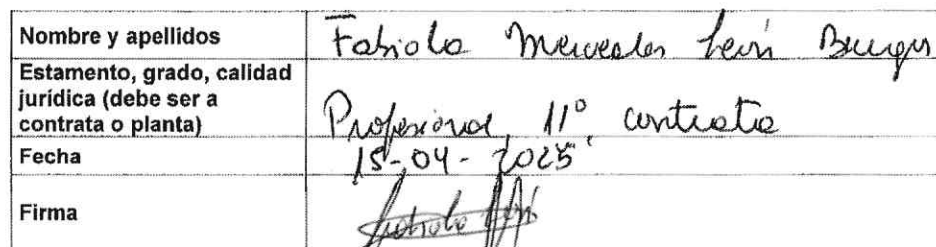 Nombre y apellidos Fabiola Mercedes León Burgos
Estamento, grado, calidad
jurídica (debe ser a
contrata o planta) Profesional, 11° contrata
Fecha 15-04-2025
Firma Fabiola León